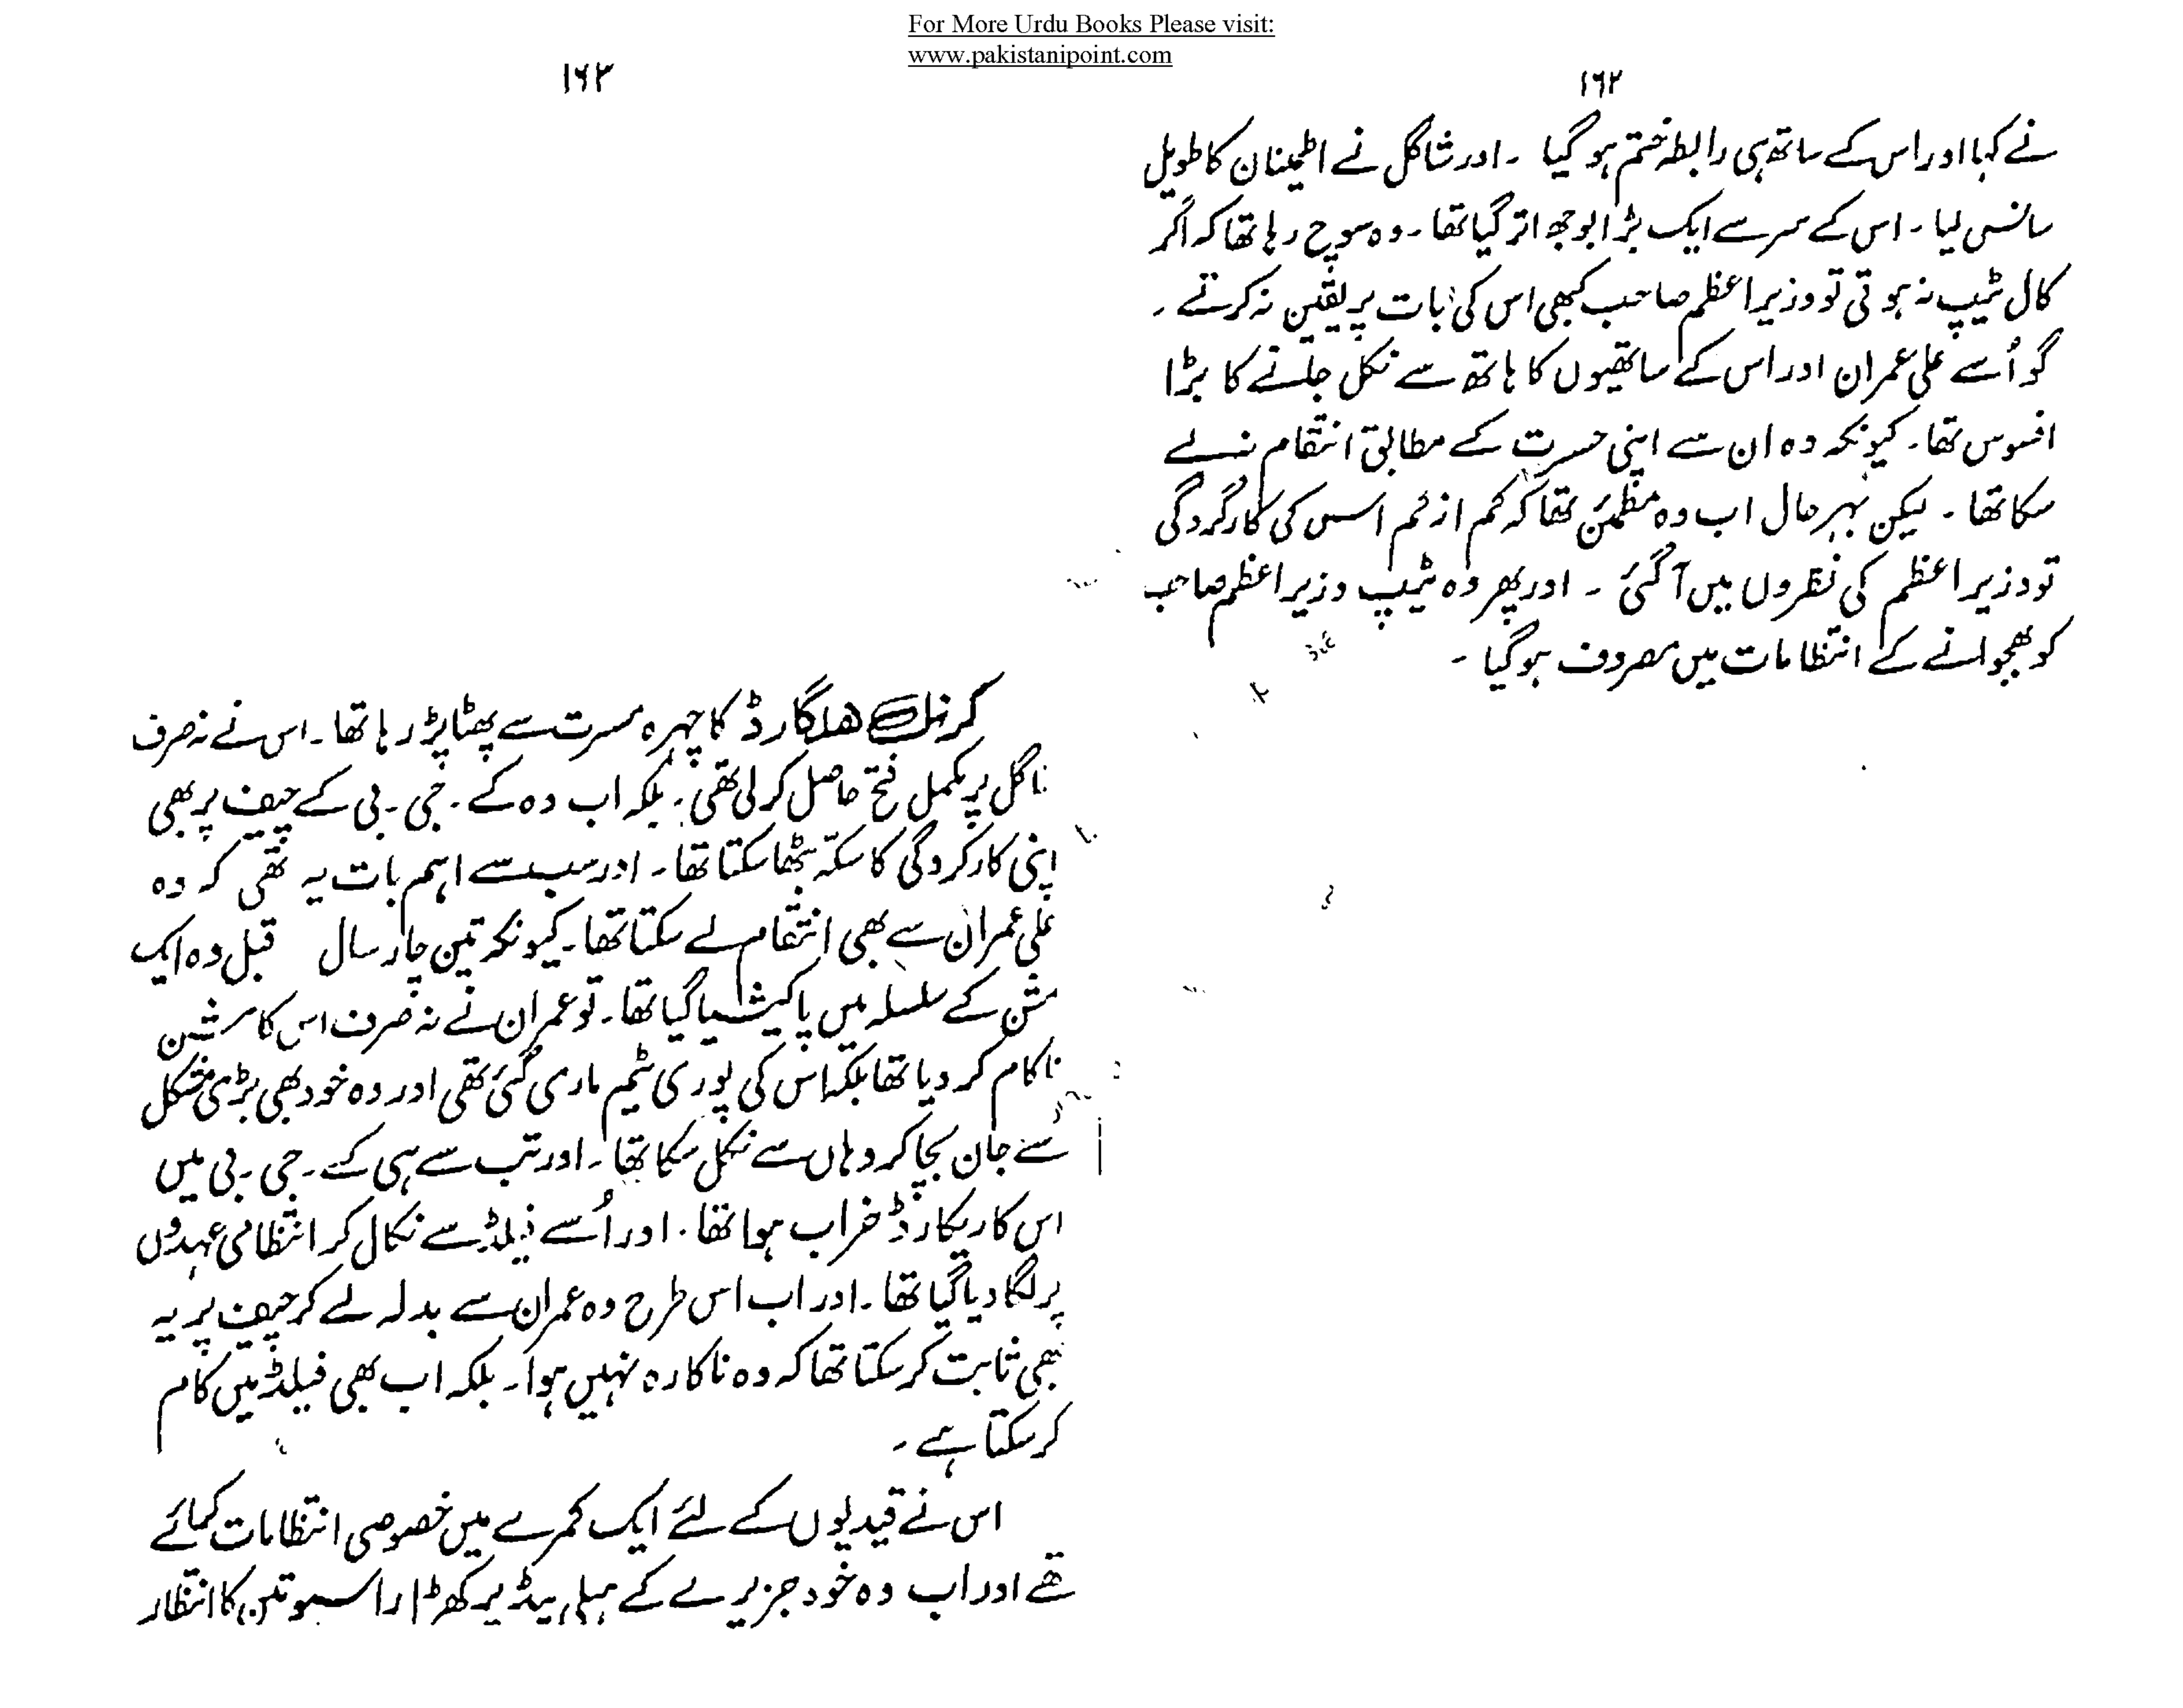 For More Urdu Books Please visit:
www.pakistanipoint.com
۱۶۲
نے کہا اور اس کے ساتھ ہی رابطہ ختم ہو گیا ۔ اور شاگل نے اطمینان کا طویل
سانس لیا ۔ اس کے سر سے ایک بڑا بوجھ اتر گیا تھا ۔ وہ سوچ رہا تھا کہ اگر
کال ٹیپ نہ ہوتی تو وزیر اعظم صاحب کبھی اس کی بات پر یقین نہ کرتے ۔
گو اُسے علی عمران اور اس کے ساتھیوں کا ہاتھ سے نکل جانے کا بڑا
افسوس تھا ۔ کیونکہ وہ ان سے اپنی حسرت کے مطابق انتقام نہ لے
سکا تھا ۔ لیکن بہرحال اب وہ مطمئن تھا کہ کم از کم اس کی کارکردگی
تو وزیر اعظم کی نظروں میں آ گئی ۔ اور پھر وہ ٹیپ وزیر اعظم صاحب
کو بھجوانے کے انتظامات میں مصروف ہو گیا ۔
۱۶۳
کرنل ھلگارڈ کا چہرہ مسرت سے پھٹا پڑ رہا تھا ۔ اس نے نہ صرف
ناگل پر مکمل فتح حاصل کر لی تھی ۔ بلکہ اب وہ کے ۔ جی ۔ بی کے چیف پر بھی
اپنی کارکردگی کا سکّہ بٹھا سکتا تھا ۔ اور سب سے اہم بات یہ تھی کہ وہ
علی عمران سے بھی انتقام لے سکتا تھا ۔ کیونکہ تین چار سال قبل وہ ایک
مشن کے سلسلہ میں پاکیشیا گیا تھا ۔ تو عمران نے نہ صرف اس کا مشن
ناکام کر دیا تھا بلکہ اس کی پوری ٹیم ماری گئی تھی اور وہ خود بھی بڑی مشکل
سے جان بچا کر وہاں سے نکل سکا تھا ۔ اور تب سے ہی کے ۔ جی ۔ بی میں
اس کا ریکارڈ خراب ہوا تھا ۔ اور اُسے فیلڈ سے نکال کر انتظامی عہدوں
پر لگا دیا گیا تھا ۔ اور اب اس طرح وہ عمران سے بدلہ لے کر چیف پر یہ
بھی ثابت کر سکتا تھا کہ وہ ناکارہ نہیں ہوا ۔ بلکہ اب بھی فیلڈ میں کام
کر سکتا ہے ۔
اس نے قیدیوں کے لئے ایک کمرے میں خصوصی انتظامات کرائے
تھے اور اب وہ خود جزیرے کے ہیلی پیڈ پر کھڑا راسپوتین کا انتظار